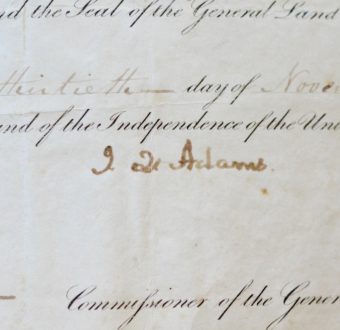 nd the Seal of the General Land
thirtieth day of Nove
and of the Independence of the Uni
J. Q. Adams.
Commissioner of the Gener